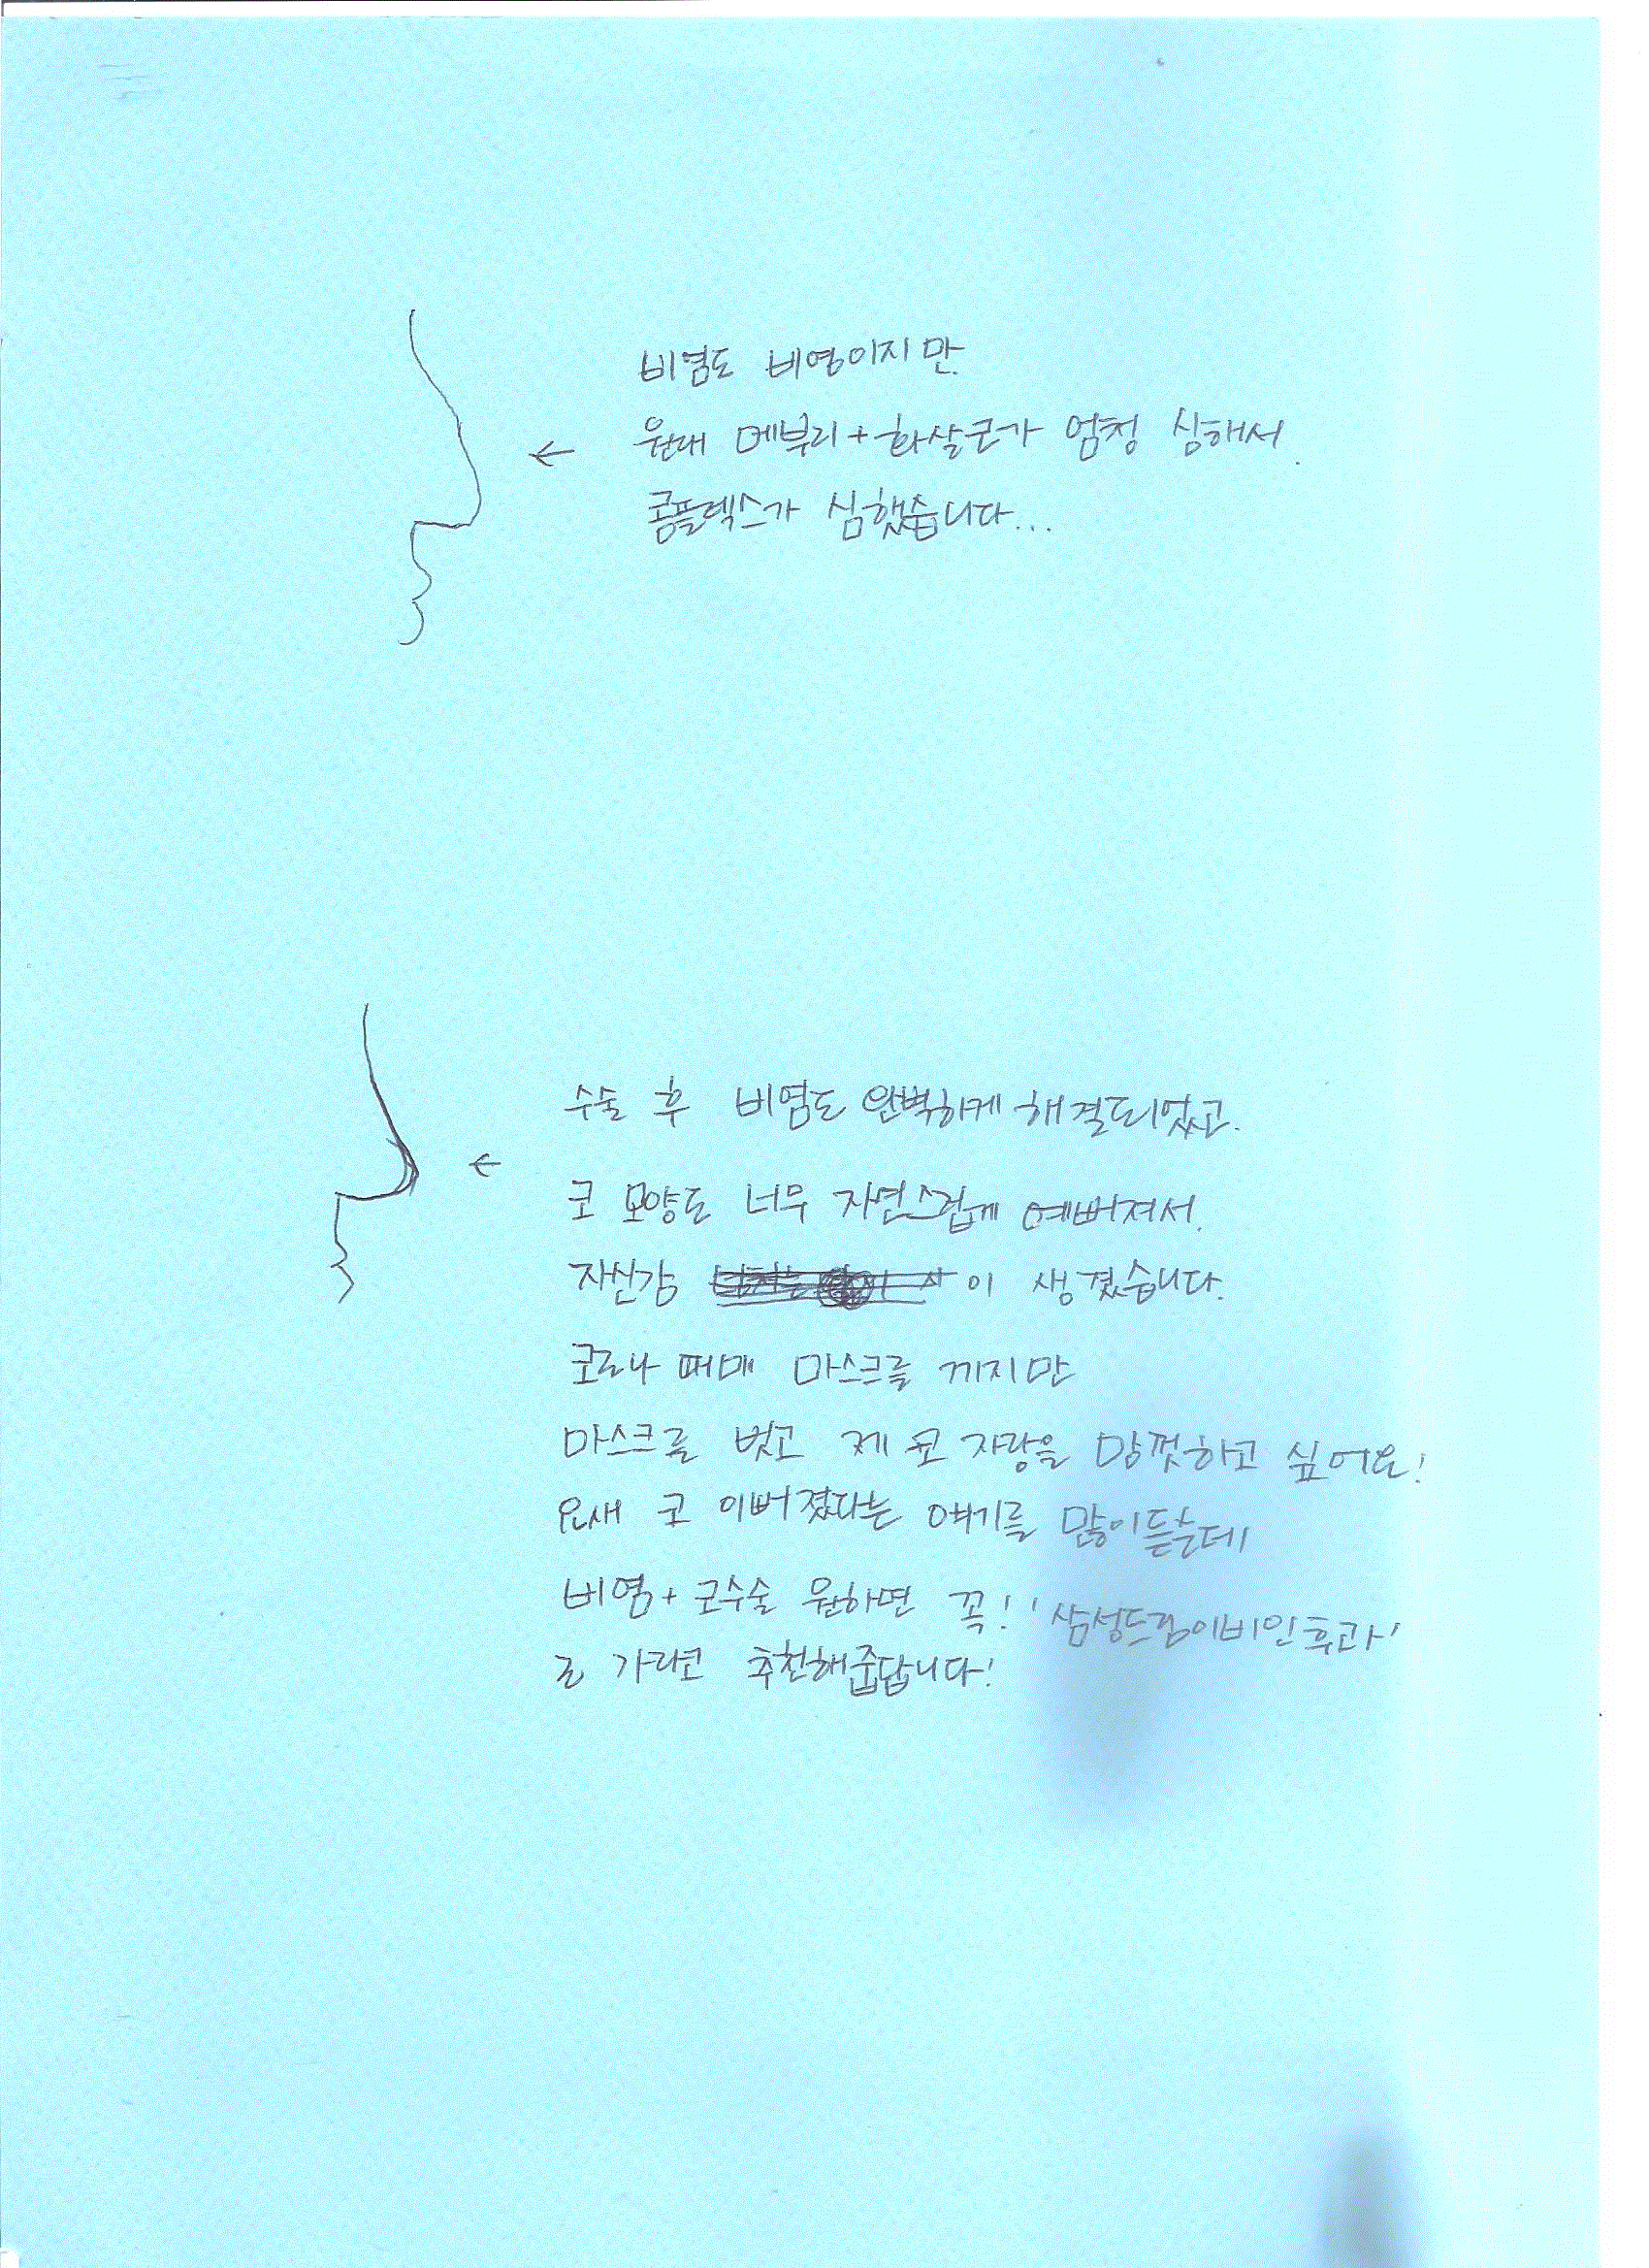 비염도 비염이지만
원래 메부리+화살코가 엄청 심해서.
콤플렉스가 심했습니다...
수술 후 비염도 완벽하게 해결되었고.
코 모양도 너무 자연스럽게 예뻐져서.
자신감 이 생겼습니다.
코로나 때매 마스크를 끼지만
마스크를 벗고 제 코 자랑을 맘껏하고 싶어요!
요새 코 이뻐졌다는 얘기를 많이듣는데
비염+코수술 원하면 꼭! '삼성드림이비인후과'
로 가라고 추천해줍답니다!